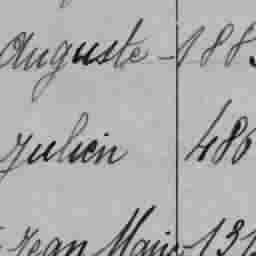 Auguste - 188
Julien 486
Jean Marie 131